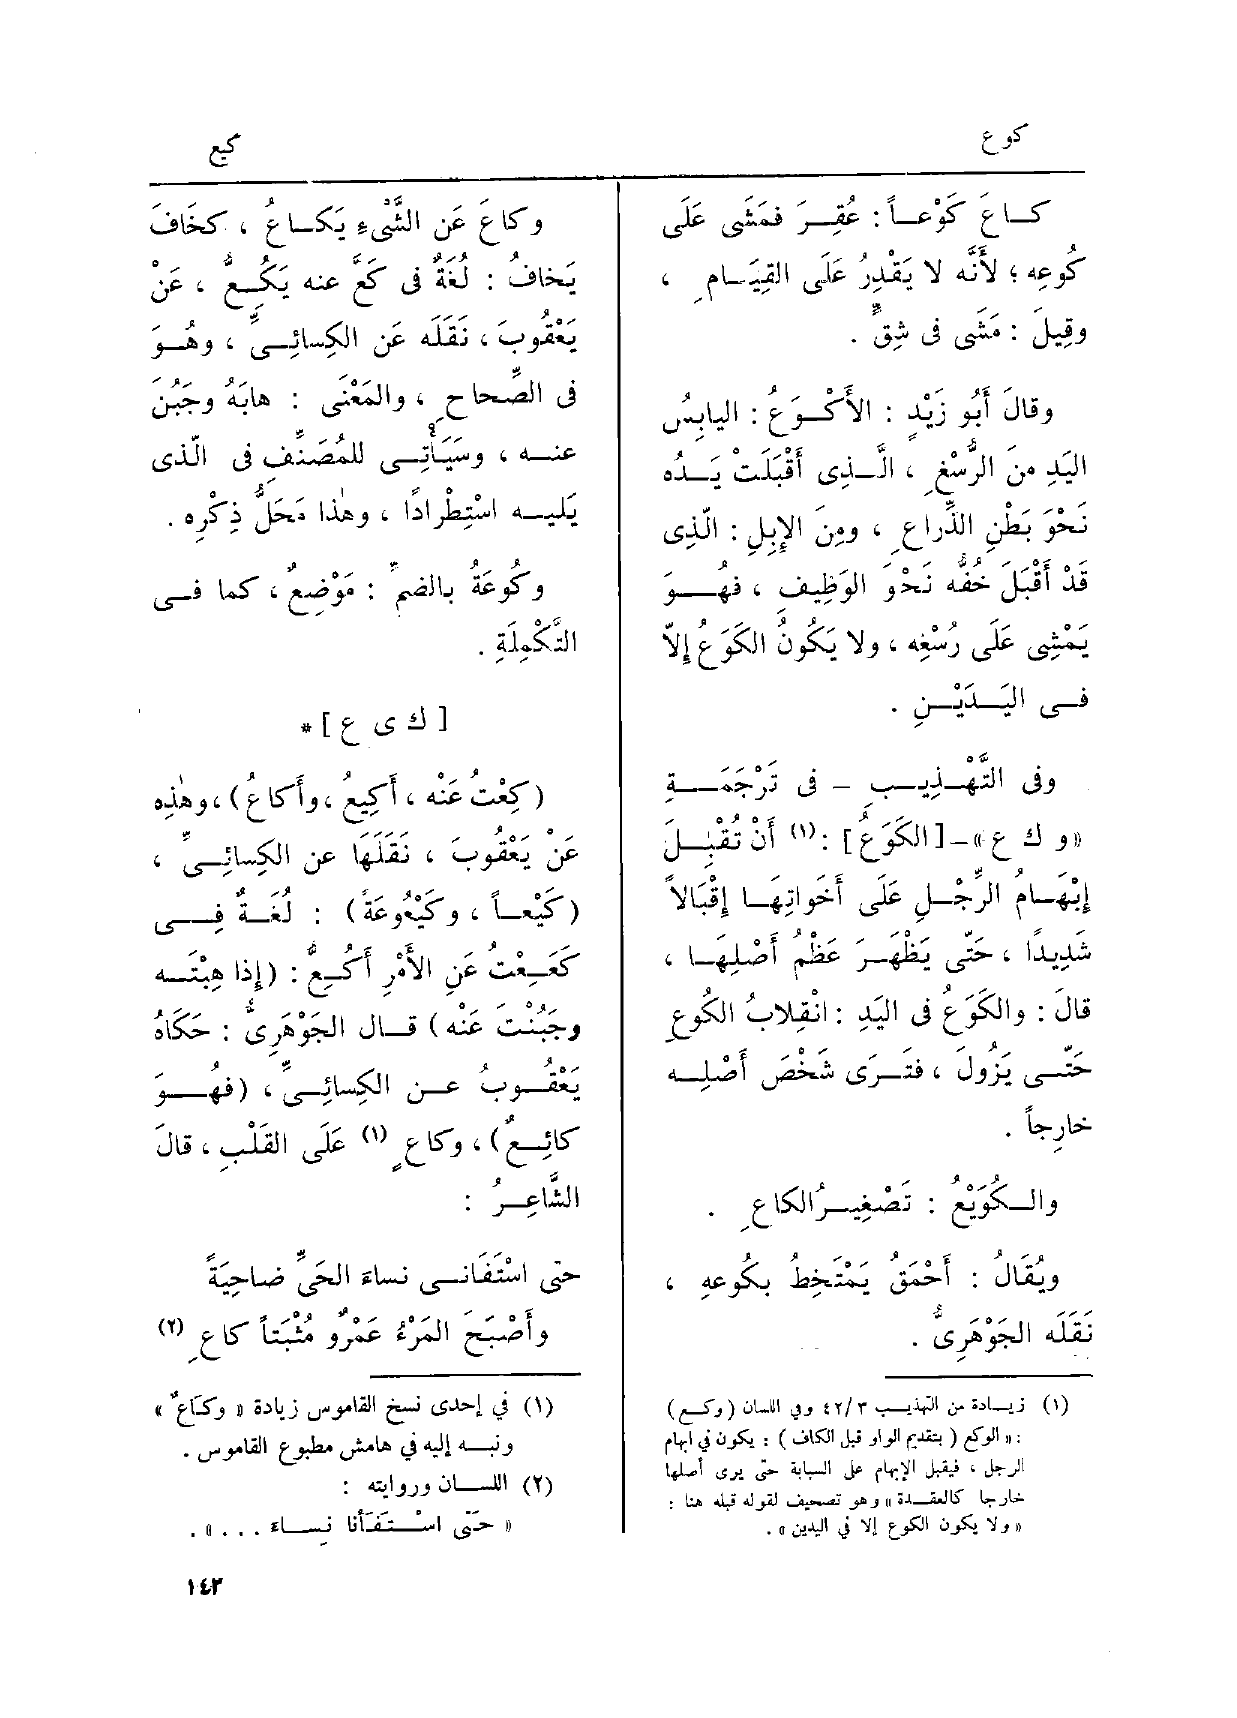 كوع
كيع
كــاعَ كَوْعــاً : عُقِــرَ فمَشَى عَلَى
كُوعِه ؛ لأَنَّه لا يَقْدِرُ عَلَى القِيَــامِ ،
وقِيلَ : مَشَى فى شِقٍّ .
وقالَ أَبُو زَيْدٍ : الأَكْــوَعُ : اليابِسُ
اليَدِ منَ الرُّسْغِ ، الَّــذِى أَقْبَلَتْ يَــدُه
نَحْوَ بَطْنِ الذِّراعِ ، ومِنَ الإِبِلِ : الَّذِى
قَدْ أَقْبَلَ خُفُّه نَحْوَ الوَظِيفِ ، فهُــوَ
يَمْشِى عَلَى رُسْغِه ، ولا يَكُونُ الكَوَعُ إِلاّ
فــى اليَــدَيْــنِ .
وفى التَّهْــذِيــبِ – فى تَرْجَمَــةِ
«و ك ع» – [الكَوَعُ] :(١) أَنْ تُقْبِــلَ
إِبْهــامُ الرِّجْــلِ عَلَى أَخَواتِهَــا إِقْبَالاً
شَدِيدًا ، حَتَّى يَظْهَــرَ عَظْمُ أَصْلِهَــا ،
قالَ : والكَوَعُ فى اليَدِ : انْقِلابُ الكُوعِ
حَتَّــى يَزُولَ ، فتَــرَى شَخْصَ أَصْلِــه
خارِجاً .
والــكُوَيْعُ : تَصْغِيــرُ الكاعِ .
ويُقَالُ : أَحْمَقُ يَمْتَخِطُ بكُوعهِ ،
نَقَلَه الجَوْهَرِىُّ .
(١) زيــادة من التهذيــب ٤٢/٣ وفي اللسان (وكــع)
: « الوكع ( بتقديم الواو قبل الكاف ) : يكون في ابهام
الرجل ، فيقبل الإبهام على السبابة حتى يرى أصلها
خارجا كالعقــدة » وهو تصحيف لقوله قبله هنا :
« ولا يكون الكوع إلا في اليدين » .
وكاعَ عَن الشَّىْءِ يَكــاعُ ، كخَافَ
يَخافُ : لُغَةٌ فى كَعَّ عنه يَكِــعُّ ، عَنْ
يَعْقُوبَ ، نَقَلَه عَن الكِسائِــىِّ ، وهُــوَ
فى الصِّحاحِ ، والمَعْنَى : هابَهُ وجَبُنَ
عنــه ، وسَيَأْتِــى للمُصَنِّفِ فى الَّذى
يَلِيــه اسْتِطْرادًا ، وهٰذا مَحَلُّ ذِكْرِه .
وكُوعَةُ بالضمِّ : مَوْضِعٌ ، كما فــى
التَّكْمِلَةِ .
[ ك ى ع ] *
(كِعْتُ عَنْه ، أَكِيعُ ، وأَكاعُ) ، وهٰذِه
عَنْ يَعْقُوبَ ، نَقَلَهَا عن الكِسائِــىِّ ،
(كَيْعــاً ، وكَيْعُوعَةً) : لُغَــةٌ فِــى
كَعَــعْتُ عَنِ الأَمْرِ أَكِــعُّ : (إِذا هِبْتَــه
وجَبُنْتَ عَنْه) قــال الجَوْهَرِىُّ : حَكَاهُ
يَعْقُــوبُ عــن الكِسائِــىِّ ، (فهُــوَ
كائِــعٌ) ، وكاعٍ (١) عَلَى القَلْبِ ، قالَ
الشَّاعِــرُ :
حتى اسْتَفَانــى نساءَ الحَىِّ ضاحِيَةً
وأَصْبَحَ المَرْءُ عَمْرٌو مُثْبَتاً كاعِ (٢)
(١) في إحدى نسخ القاموس زيادة « وكــاعٌ »
ونبــه إليه في هامش مطبوع القاموس .
(٢) اللســان وروايته :
« حَتّى اسْــتَفَأْنا نِســاءَ . . . » .
١٤٣